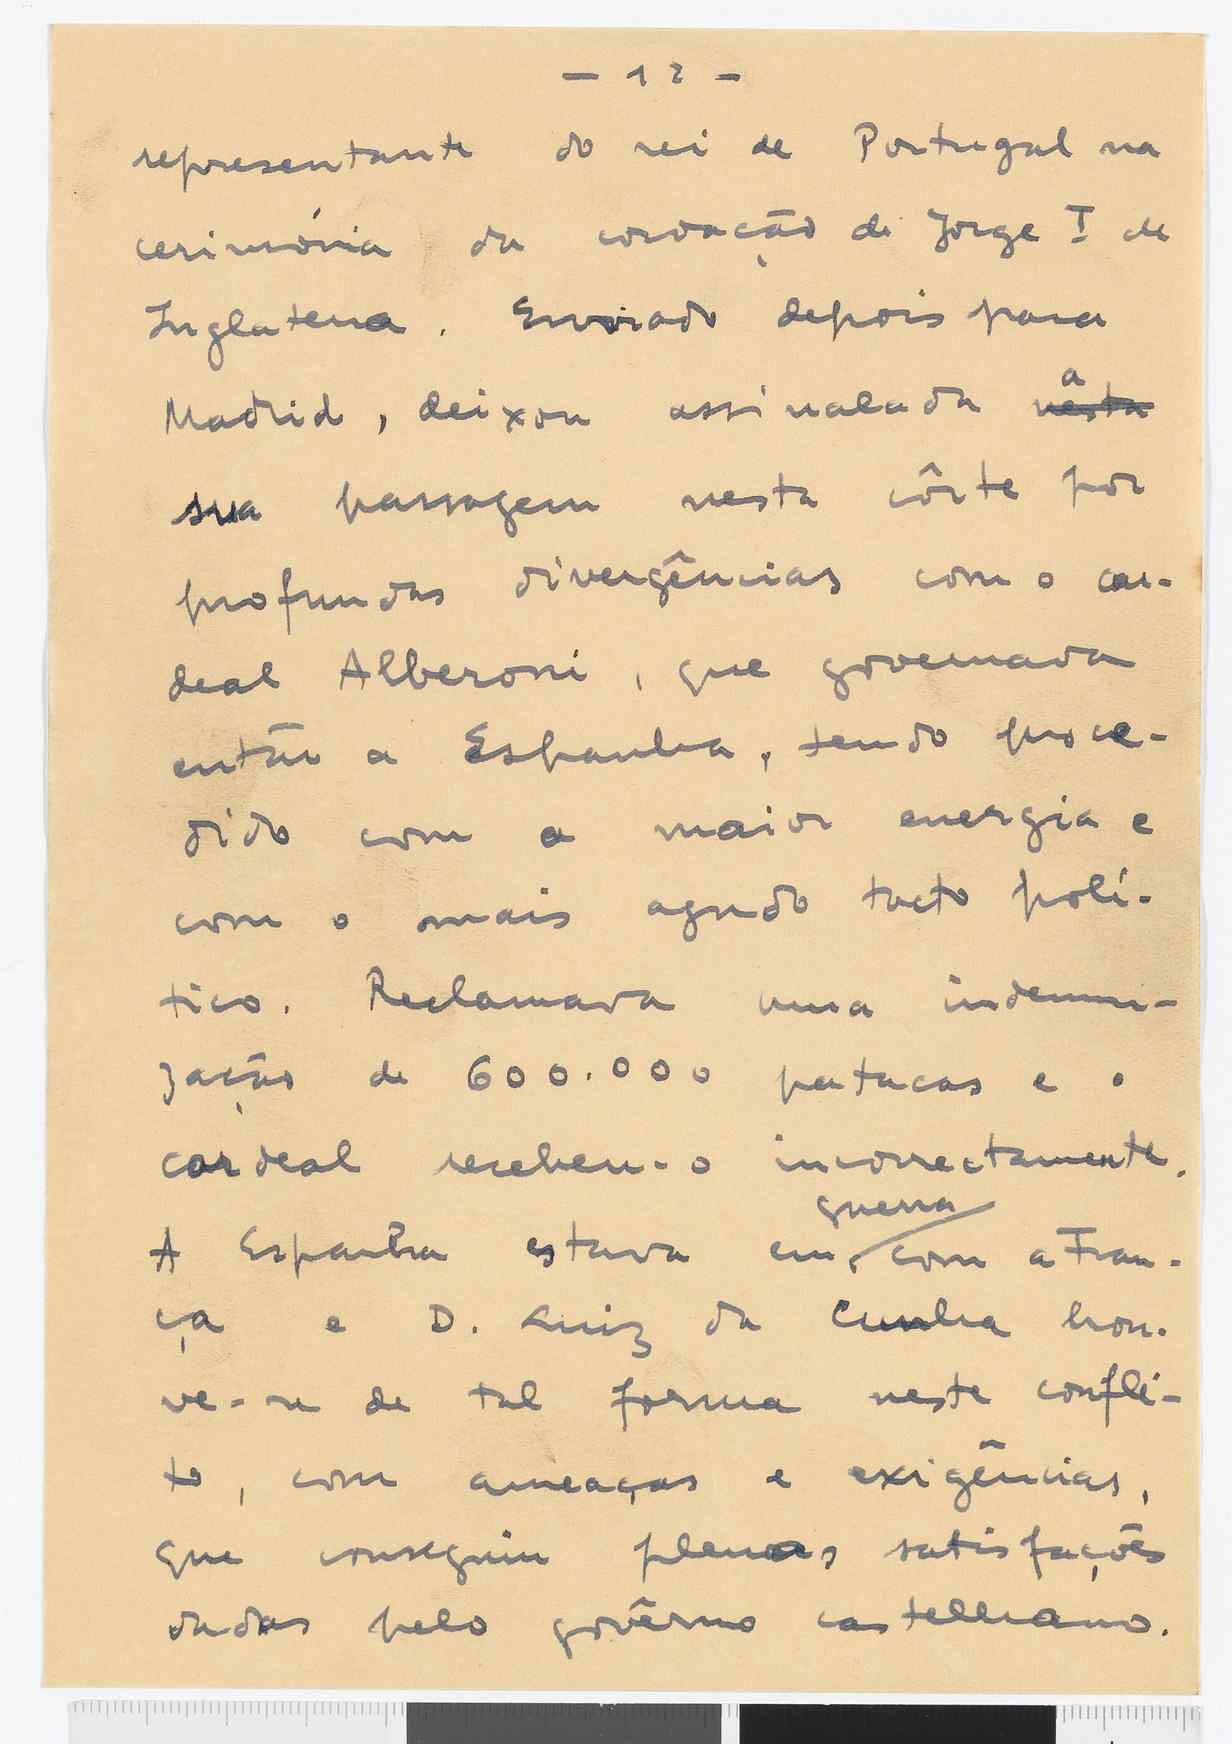 - 12 -
representante do rei de Portugal na
cerimónia da coroação de Jorge I de
Inglaterra. Enviado depois para
Madrid, deixou assinalada a nesta
sua passagem nesta côrte por
profundas divergências com o car-
deal Alberoni, que governava
então a Espanha, tendo proce-
dido com a maior energia e
com o mais agudo tacto polí-
tico. Reclamava uma indemni-
zação de 600.000 patacas e o
cardeal recebeu-o incorrectamente.
A Espanha estava em guerra com a Fran-
ça e D. Luiz da Cunha hou-
ve-se de tal forma neste confli-
to, com ameaças e exigências,
que conseguiu plenas satisfações
dadas pelo govêrno castelhano.